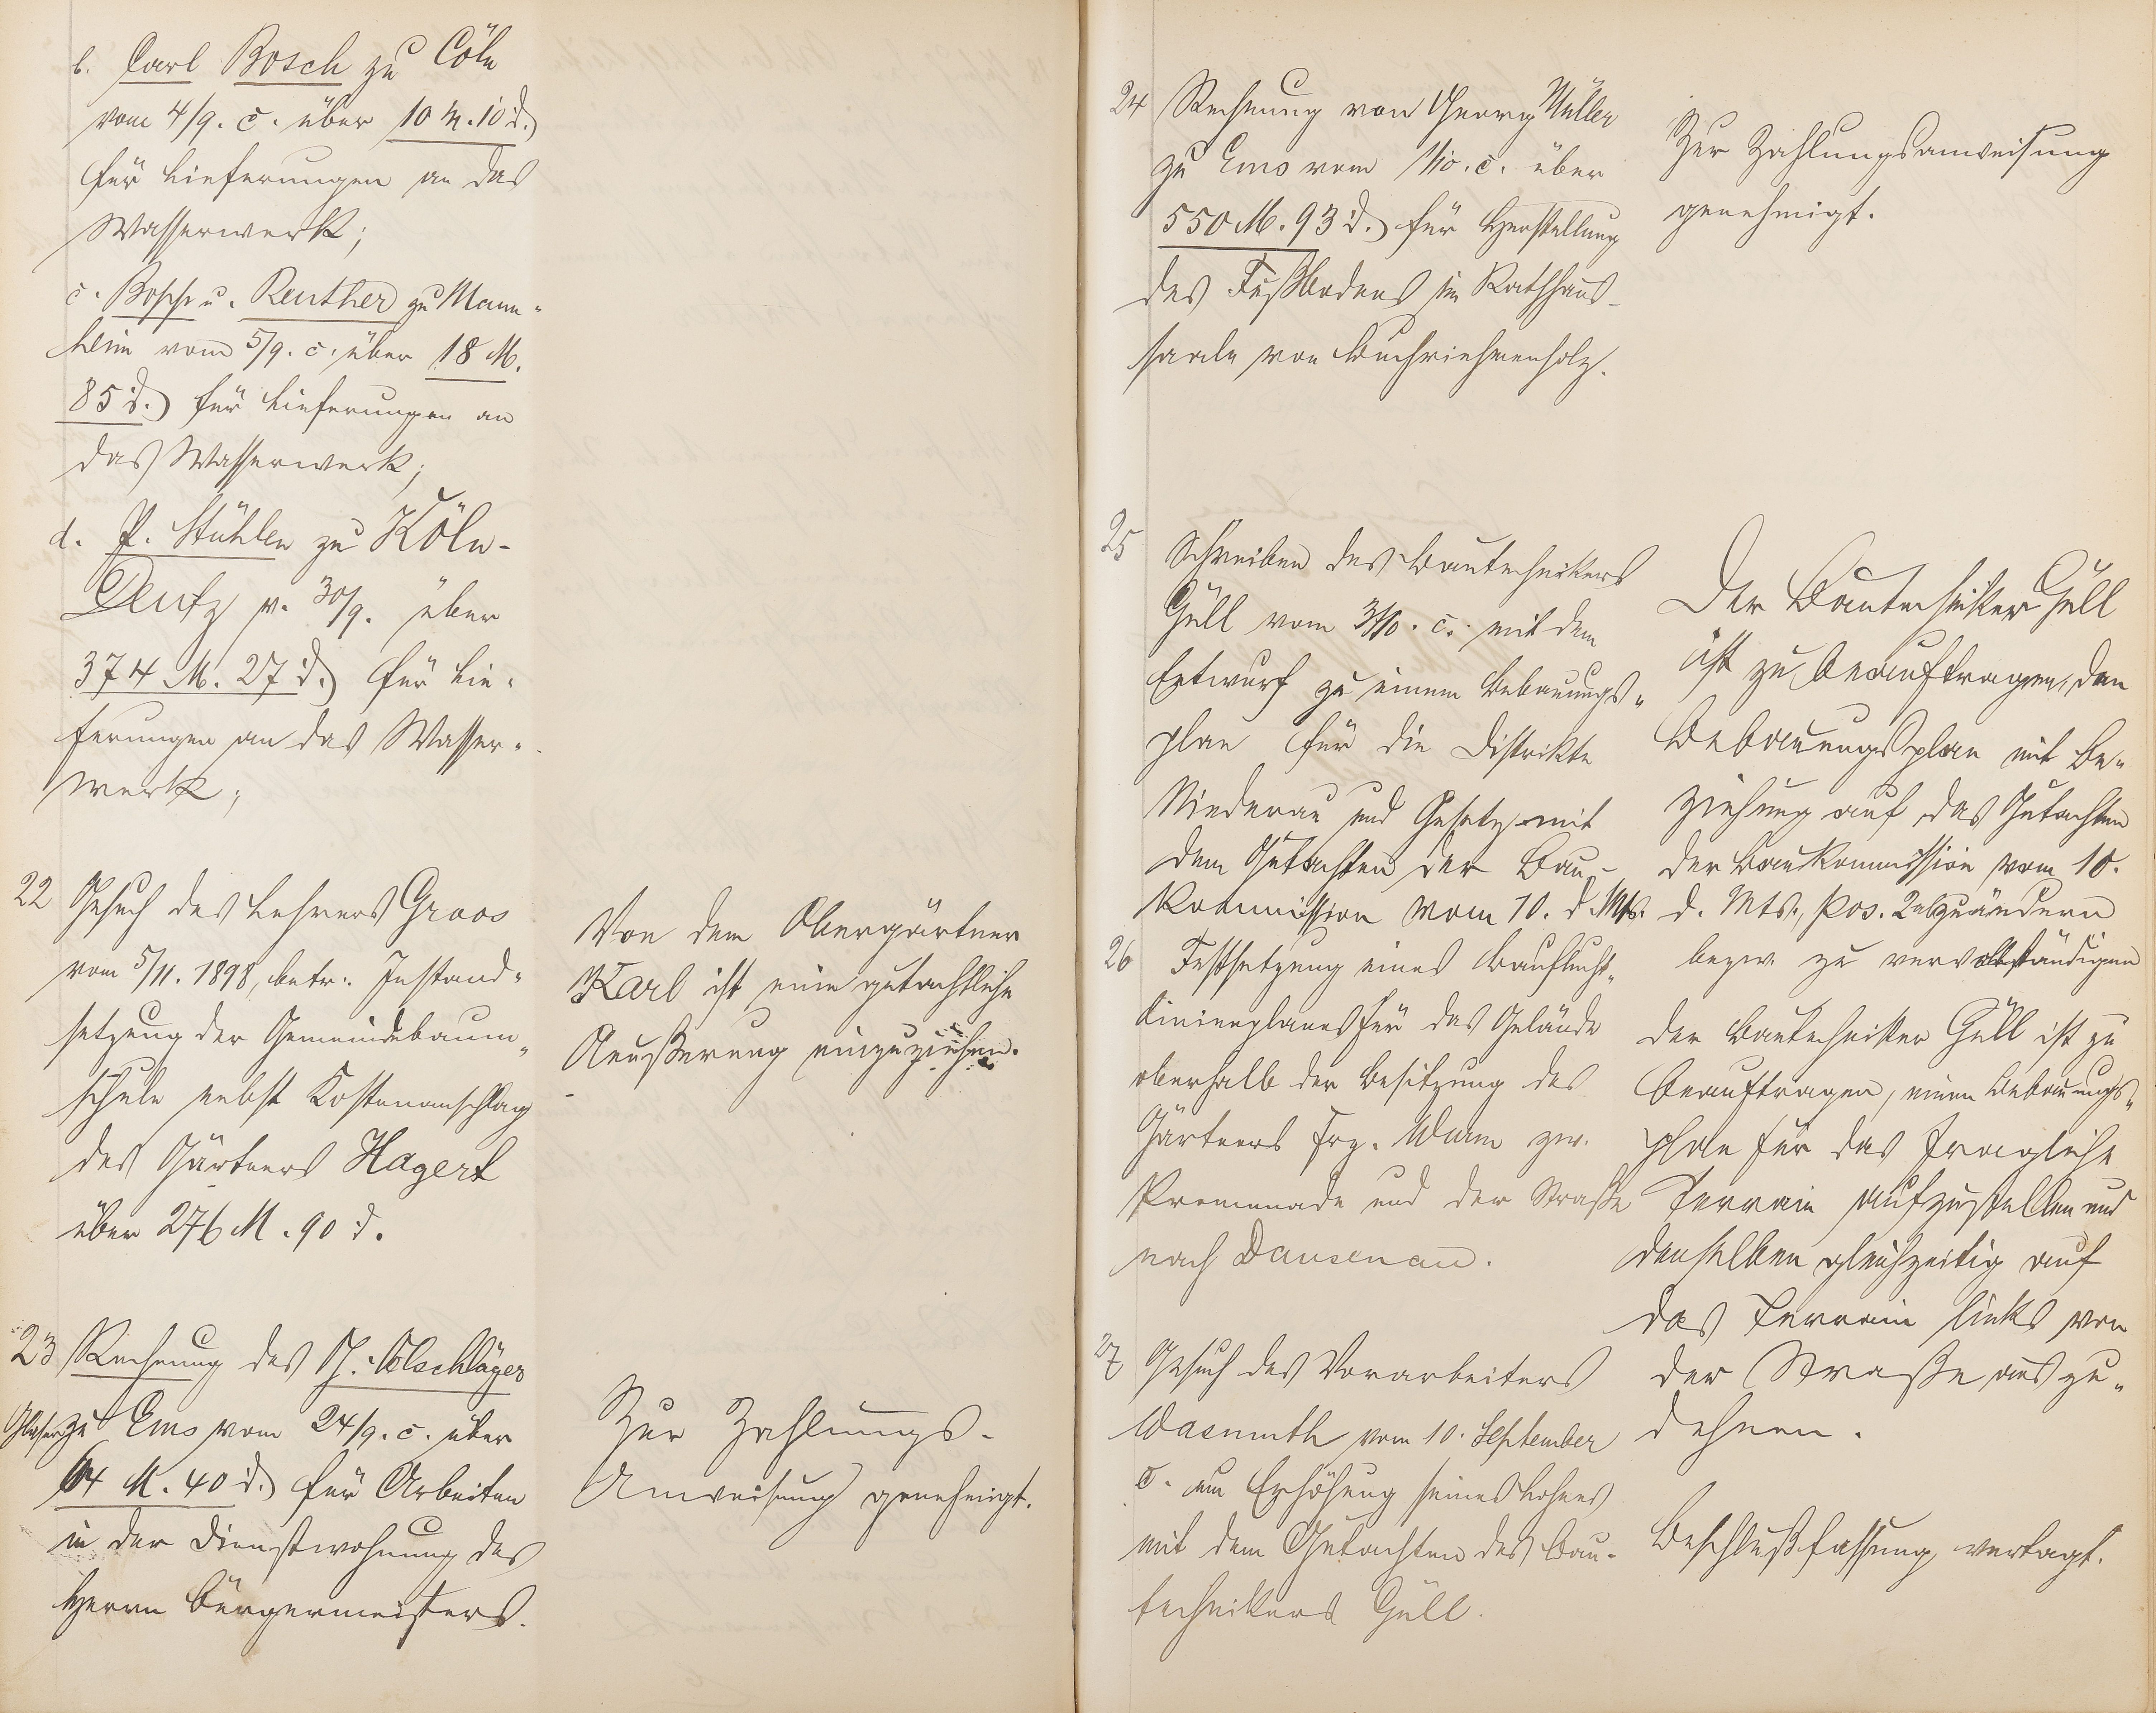 b. Carl Bosch zu Cöln
vom 4/9. c. über 10 M. 10 d.
für Lieferungen an das
Wasserwerk;
c. Bopp u. Reuther zu Mann-
heim vom 5/9. c. über 18 M.
85 d. für Lieferungen an
das Wasserwerk;
d. P. Stühlen zu Köln-
Deutz v. 30/9. über
374 M. 27 d. für Lie-
ferungen an das Wasser-
werk;
22 Gesuch des Lehrers Groos
vom 5/11. 1898, betr. Instand-
setzung der Gemeindebaum-
schule nebst Kostenanschlag
des Gärtners Hagert
über 276 M. 90 d.
Von dem Obergärtner
Karl ist eine gutachtliche
Aeußerung einzuziehen.
23 Rechnung des Ölschläger
Glaser zu Ems vom 24/9. c. über
64 M. 40 d. für Arbeiten
in der Dienstwohnung des
Herrn Bürgermeisters.
Zur Zahlungs-
Anweisung genehmigt.
24 Rechnung von Georg Müller
zu Ems vom 1/10. c. über
550 M. 93 d. für Herstellung
des Fußbodens im Rathhaus-
saale von Buchriehmenholz.
Zur Zahlungsanweisung
genehmigt.
25 Schreiben des Bautechnikers
Güll vom 3/10. c. mit dem
Entwurf zu einem Bebauungs-
plan für die Distrikte
Niederau und Gesetz mit
dem Gutachten der Bau-
Kommission vom 10. d. Mts.
Der Bautechniker Güll
ist zu beauftragen, den
Bebauungsplan mit Be-
ziehung auf das Gutachten
der Baukommission vom 10.
d. Mts., Pos. 2 abzuändern
bezw. zu vervollständigen
26 Festsetzung eines Bauflucht-
linienplanes für das Gelände
oberhalb der Besitzung des
Gärtners Frz. Ww. zw.
Promenade und der Straße
nach Dausenau.
Der Bautechniker Güll ist zu
beauftragen, einen Bebauungs-
plan für das fragliche
Terrain aufzustellen und
denselben gleichzeitig auf
das Terrain links von
der Straße auszu-
dehnen.
27 Gesuch des Vorarbeiters
Wasmuth vom 10. September
c. um Erhöhung seines Lohnes
mit dem Gutachten des Bau-
technikers Güll.
Beschlußfassung vertagt.